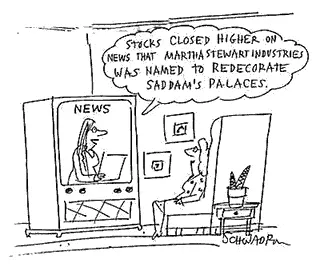 STOCKS CLOSED HIGHER ON
NEWS THAT MARTHA STEWART INDUSTRIES
WAS NAMED TO REDECORATE
SADDAM'S PALACES.
NEWS
SCHWADRON